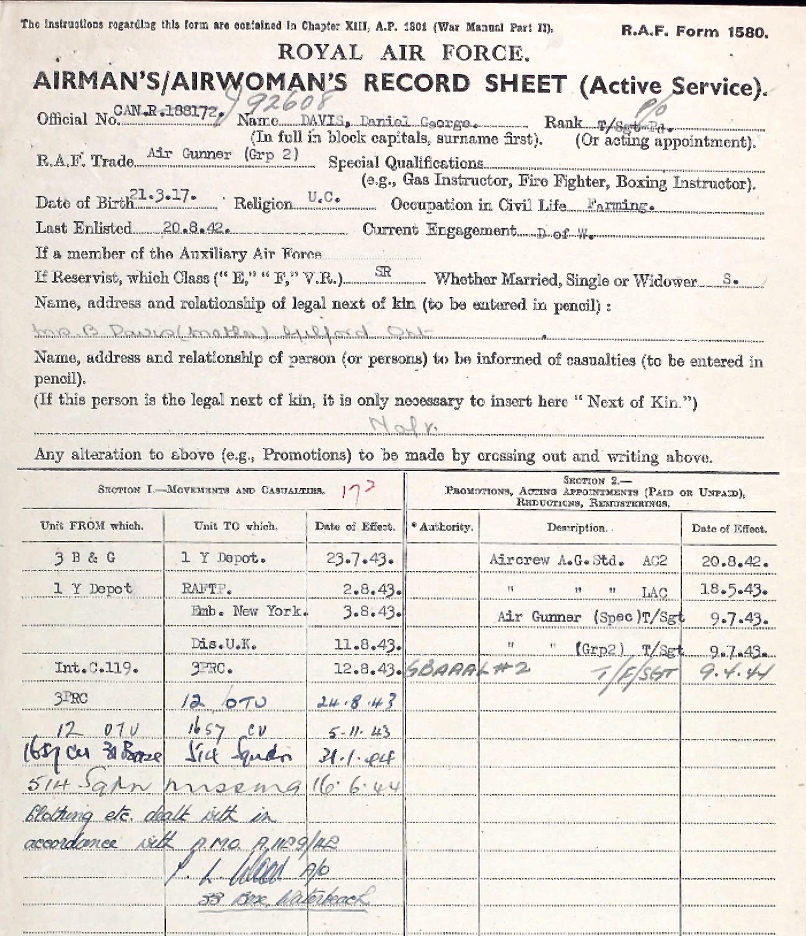 The instructions regarding this form are contained in Chapter XIII, A.P. 1301 (War Manual Part II). R.A.F. Form 1580.
ROYAL AIR FORCE.
AIRMAN'S/AIRWOMAN'S RECORD SHEET (Active Service).
J 92608 P/O
Official No. CAN.R.188172. Name DAVIS, Daniel George. Rank T/Sgt.
(In full in block capitals, surname first). (Or acting appointment).
R.A.F. Trade Air Gunner (Grp 2) Special Qualifications
(e.g., Gas Instructor, Fire Fighter, Boxing Instructor).
Date of Birth 21.3.17. Religion U.C. Occupation in Civil Life Farming.
Last Enlisted 20.8.42. Current Engagement D of W.
If a member of the Auxiliary Air Force
If Reservist, which Class ("E," "F," V.R.) SR Whether Married, Single or Widower S.
Name, address and relationship of legal next of kin (to be entered in pencil) :
Mrs B Davis (mother) Gilford Ont
Name, address and relationship of person (or persons) to be informed of casualties (to be entered in
pencil).
(If this person is the legal next of kin, it is only necessary to insert here "Next of Kin.")
N of K.
Any alteration to above (e.g., Promotions) to be made by crossing out and writing above.
SECTION I.—MOVEMENTS AND CASUALTIES. 172 SECTION 2.—
PROMOTIONS, ACTING APPOINTMENTS (PAID OR UNPAID),
REDUCTIONS, REMUSTERINGS.
Unit FROM which. Unit TO which. Date of Effect. * Authority. Description. Date of Effect.
3 B & G 1 Y Depot. 23.7.43. Aircrew A.G.Std. AC2 20.8.42.
1 Y Depot RAFTP. 2.8.43. " " " LAC 18.5.43.
Emb. New York. 3.8.43. Air Gunner (Spec)T/Sgt 9.7.43.
Dis.U.K. 11.8.43. " " (Grp2) T/Sgt 9.7.43.
Int.C.119. 3PRC. 12.8.43. #2 T/F/SGT 9.4.44
3PRC 12 OTU 24.8.43
12 OTU 1657 CU 5-11.43
1657 CU 514 Squdn 31.1.44
514 Sqdn missing 16.6.44
Clothing etc. dealt with in
accordance with A.M.O. A.1129/42
P. L. Wood A/O
33 Base, Waterbeach